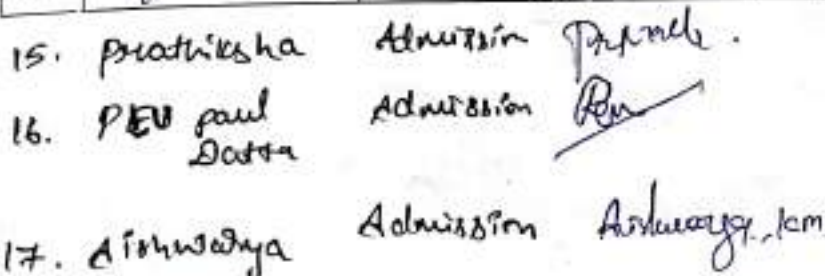 15. Prathiksha Admission
16. PEU paul Admission
Datta
17. Aishwarya Admission Aishwarya.km